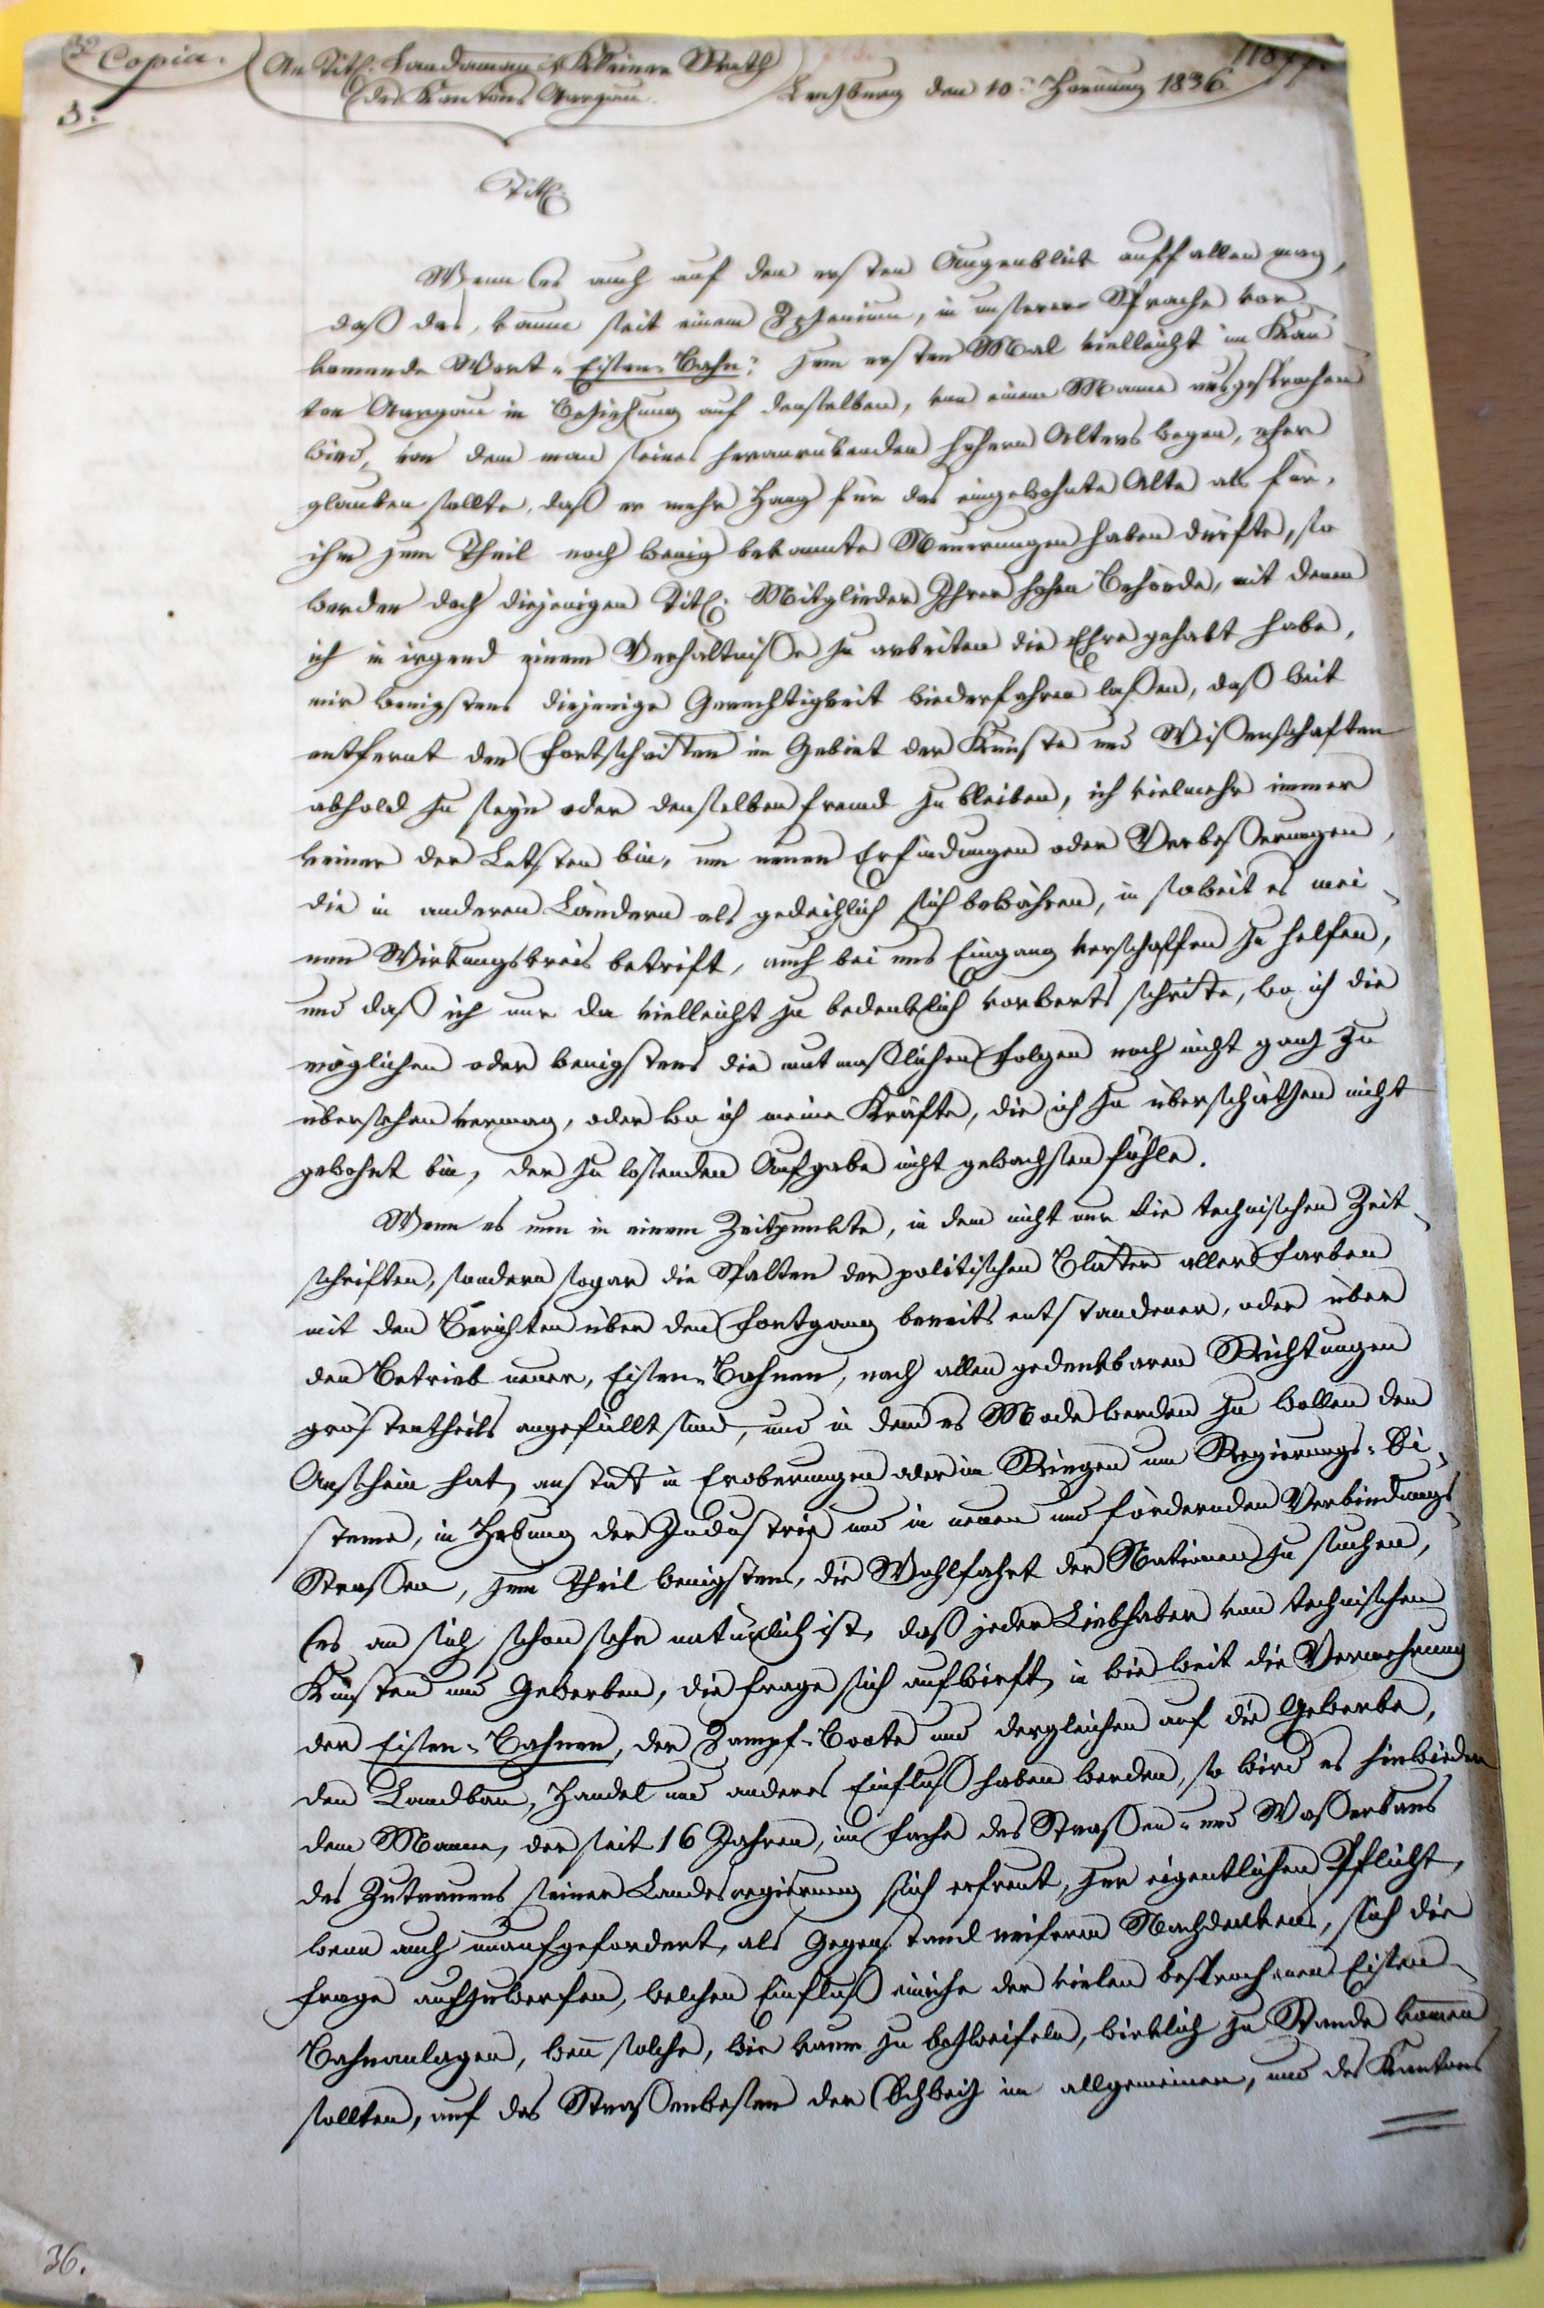 Copia.
An Titl. Landaman & Kleinen Rath
des Kantons Aargau.
Lenzburg den 10.n Hornung 1836.
3.
Titl.
Wenn es auch auf den ersten Augenblik auffallen mag,
daß das, kaum seit einem Dezenium, in unserer Sprache vor¬
komende Wort „Eisen-Bahn“ zum ersten Mal vielleicht im Kan¬
ton Aargau in Beziehung auf denselben, von einem Manne ausgesprochen
wird, von dem man seines heranrükenden höhern Alters wegen, eher
glauben sollte, daß er mehr Hang für das eingewohnte Alte als für,
ihm zum Theil noch wenig bekannte Neuerungen haben dürfte, so
werden doch diejenigen Titl. Mitglieder Ihrer hohen Behörde, mit denen
ich in irgend einem Verhältniße zu arbeiten die Ehre gehabt habe,
mir wenigstens diejenige Gerechtigkeit wiederfahren laßen, daß weit
entfernt den Fortschritten im Gebiet der Künste und Wißenschaften
abhold zu seyn oder denselben fremd zu bleiben, ich vielmehr immer
keiner der Letzten bin, um neuen Erfindungen oder Verbeßerungen,
die in anderen Ländern als gedeihlich sich bewähren, in soweit es mei¬
nen Wirkungskreis betrift, auch bei uns Eingang verschaffen zu helfen,
und daß ich nur da vielleicht zu bedenklich vorwerts schritte, wo ich die
möglichen oder wenigstens die mutmaßlichen Folgen noch nicht ganz zu
übersehen vermag, oder wo ich meine Kräfte, die ich zu überschätzen nicht
gewohnt bin, der zu lösenden Aufgabe nicht gewachsen fühle.
Wenn es nun in einem Zeitpunkte, in dem nicht nur die technischen Zeit¬
schriften, sondern sogar die Spalten der politischen Blätter aller Farben
mit den Berichten über den Fortgang bereits entstandener, oder über
den Betrieb neuer, Eisen-Bahnen, nach allen gedenkbaren Richtungen
größtentheils angefüllt sind, und in dem es Mode werden zu wollen den
Anschein hat, anstatt in Eroberungen oder im Ringen um Regierungs-Si¬
steme, in Hebung der Industrie und in neuen und fördernden Verbindungs¬
Straßen, zum Theil wenigstens, die Wohlfahrt der Nationen zu suchen,
es an sich schon sehr natürlich ist, daß jeder Liebhaber von technischen
Künsten und Gewerben, die Frage sich aufwirft, in wie weit die Vermehrung
der Eisen-Bahnen, der Dampf-Boote und dergleichen auf die Gewerbe,
den Landbau, Handel und anderes Einfluß haben werden, so wird es hinwieder
dem Manne, der seit 16 Jahren, im Fache des Straßen- und Waßerbaus
des Zutrauens seiner Landesregierung sich erfreut, zur eigentlichen Pflicht,
wenn auch unaufgefordert, als Gegenstand reiferen Nachdenkens, sich die
Frage aufzuwerfen, welchen Einfluß einiche der vielen besprochenen Eisen¬
Bahnanlagen, wenn solche, wie kaum zu bezweifeln, wirklich zu Stande kommen
sollten, auf das Straßenwesen der Schweiz im allgemeinen, und des Kantons
36.